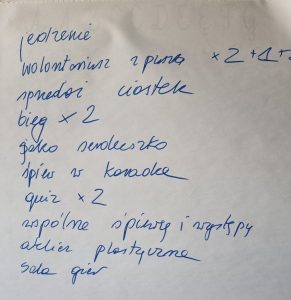 jedzenie
wolontariusz z puszką x 2 + 1
sprzedaż ciastek
bieg x 2
jako serduszko
śpiew w karaoke
quiz x 2
wspólne śpiewy i występy
atelier plastyczne
sala gier